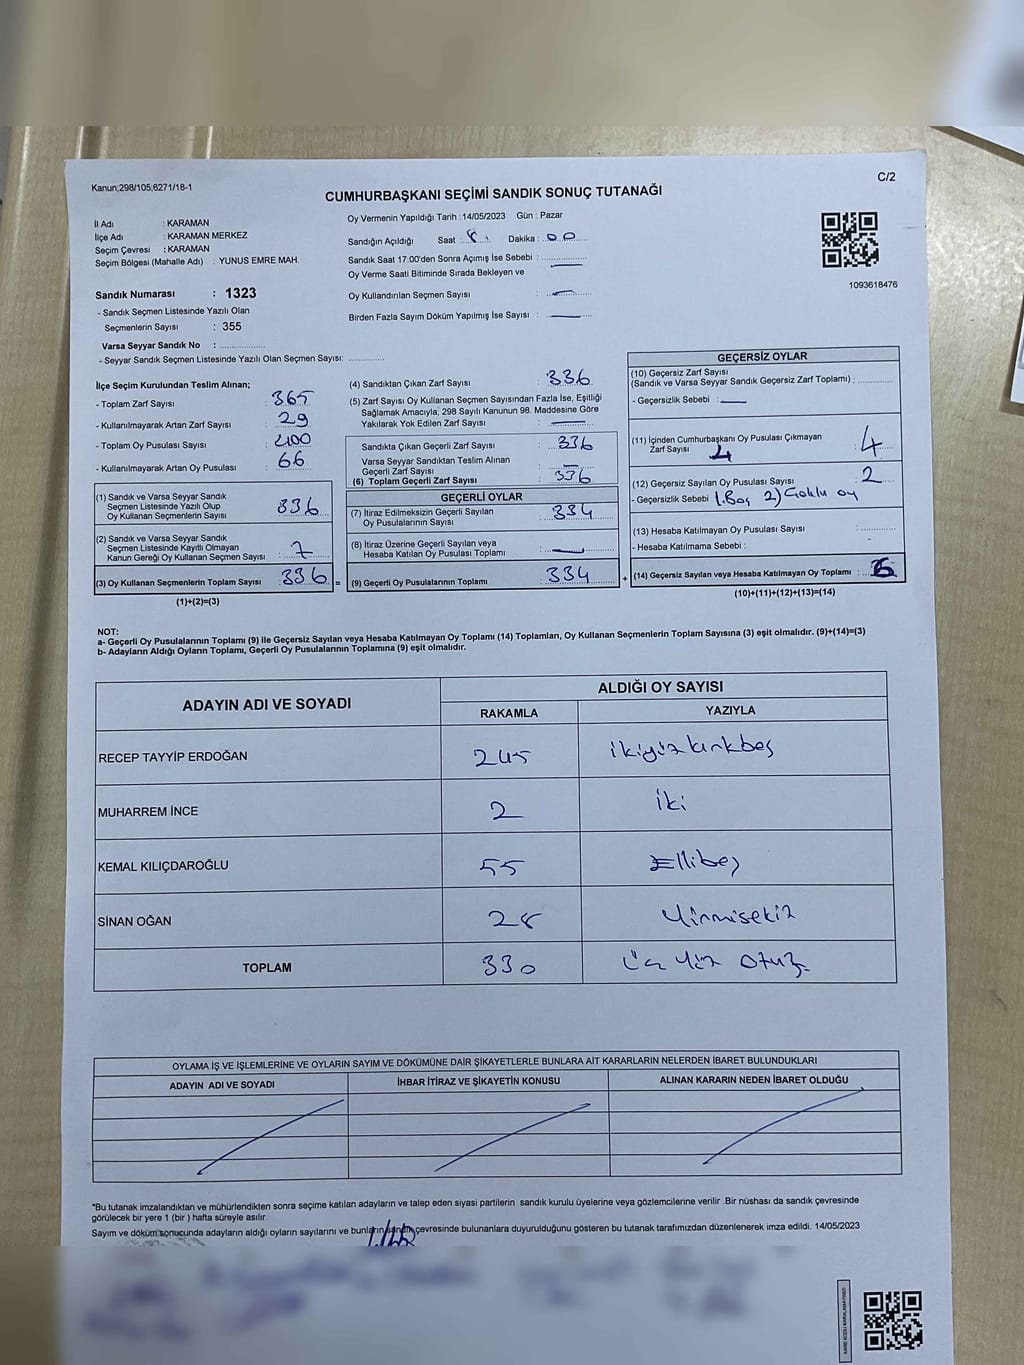 Kanun;298/105;6271/18-1
C/2
CUMHURBAŞKANI SEÇİMİ SANDIK SONUÇ TUTANAĞI
İl Adı : KARAMAN
İlçe Adı : KARAMAN MERKEZ
Seçim Çevresi : KARAMAN
Seçim Bölgesi (Mahalle Adı) : YUNUS EMRE MAH.
Sandık Numarası : 1323
- Sandık Seçmen Listesinde Yazılı Olan
Seçmenlerin Sayısı : 355
Varsa Seyyar Sandık No :
- Seyyar Sandık Seçmen Listesinde Yazılı Olan Seçmen Sayısı:
Oy Vermenin Yapıldığı Tarih : 14/05/2023 Gün : Pazar
Sandığın Açıldığı Saat : 8 Dakika : 00
Sandık Saat 17:00'den Sonra Açımış İse Sebebi :
Oy Verme Saati Bitiminde Sırada Bekleyen ve
Oy Kullandırılan Seçmen Sayısı : —
Birden Fazla Sayım Döküm Yapılmış İse Sayısı : —
1093618476
İlçe Seçim Kurulundan Teslim Alınan;
- Toplam Zarf Sayısı : 365
- Kullanılmayarak Artan Zarf Sayısı : 29
- Toplam Oy Pusulası Sayısı : 400
- Kullanılmayarak Artan Oy Pusulası : 66
(1) Sandık ve Varsa Seyyar Sandık
Seçmen Listesinde Yazılı Olup
Oy Kullanan Seçmenlerin Sayısı : 336
(2) Sandık ve Varsa Seyyar Sandık
Seçmen Listesinde Kayıtlı Olmayan
Kanun Gereği Oy Kullanan Seçmen Sayısı :
(3) Oy Kullanan Seçmenlerin Toplam Sayısı : 336 =
(1)+(2)=(3)
(4) Sandıktan Çıkan Zarf Sayısı : 336
(5) Zarf Sayısı Oy Kullanan Seçmen Sayısından Fazla İse, Eşitliği
Sağlamak Amacıyla, 298 Sayılı Kanunun 98. Maddesine Göre
Yakılarak Yok Edilen Zarf Sayısı : —
Sandıkta Çıkan Geçerli Zarf Sayısı : 336
Varsa Seyyar Sandıktan Teslim Alınan
Geçerli Zarf Sayısı : —
(6) Toplam Geçerli Zarf Sayısı : 336
GEÇERLİ OYLAR
(7) İtiraz Edilmeksizin Geçerli Sayılan
Oy Pusulalarının Sayısı : 334
(8) İtiraz Üzerine Geçerli Sayılan veya
Hesaba Katılan Oy Pusulası Toplamı : —
(9) Geçerli Oy Pusulalarının Toplamı : 334 +
GEÇERSİZ OYLAR
(10) Geçersiz Zarf Sayısı
(Sandık ve Varsa Seyyar Sandık Geçersiz Zarf Toplamı) :
- Geçersizlik Sebebi : —
(11) İçinden Cumhurbaşkanı Oy Pusulası Çıkmayan
Zarf Sayısı 4 : 4
(12) Geçersiz Sayılan Oy Pusulası Sayısı : 2
- Geçersizlik Sebebi 1. Boş 2) Çoklu oy
(13) Hesaba Katılmayan Oy Pusulası Sayısı :
- Hesaba Katılmama Sebebi :
(14) Geçersiz Sayılan veya Hesaba Katılmayan Oy Toplamı : 6
(10)+(11)+(12)+(13)=(14)
NOT:
a- Geçerli Oy Pusulalarının Toplamı (9) ile Geçersiz Sayılan veya Hesaba Katılmayan Oy Toplamı (14) Toplamları, Oy Kullanan Seçmenlerin Toplam Sayısına (3) eşit olmalıdır. (9)+(14)=(3)
b- Adayların Aldığı Oyların Toplamı, Geçerli Oy Pusulalarının Toplamına (9) eşit olmalıdır.
ADAYIN ADI VE SOYADI
ALDIĞI OY SAYISI
RAKAMLA YAZIYLA
RECEP TAYYİP ERDOĞAN 245 ikiyüz kırkbeş
MUHARREM İNCE 2 iki
KEMAL KILIÇDAROĞLU 55 Ellibeş
SİNAN OĞAN 28 Yirmisekiz
TOPLAM 330 Üç Yüz Otuz
OYLAMA İŞ VE İŞLEMLERİNE VE OYLARIN SAYIM VE DÖKÜMÜNE DAİR ŞİKAYETLERLE BUNLARA AİT KARARLARIN NELERDEN İBARET BULUNDUKLARI
ADAYIN ADI VE SOYADI İHBAR İTİRAZ VE ŞİKAYETİN KONUSU ALINAN KARARIN NEDEN İBARET OLDUĞU
*Bu tutanak imzalandıktan ve mühürlendikten sonra seçime katılan adayların ve talep eden siyasi partilerin sandık kurulu üyelerine veya gözlemcilerine verilir .Bir nüshası da sandık çevresinde
görülecek bir yere 1 (bir ) hafta süreyle asılır.
Sayım ve döküm sonucunda adayların aldığı oyların sayılarını ve bunların sandık çevresinde bulunanlara duyurulduğunu gösteren bu tutanak tarafımızdan düzenlenerek imza edildi. 14/05/2023